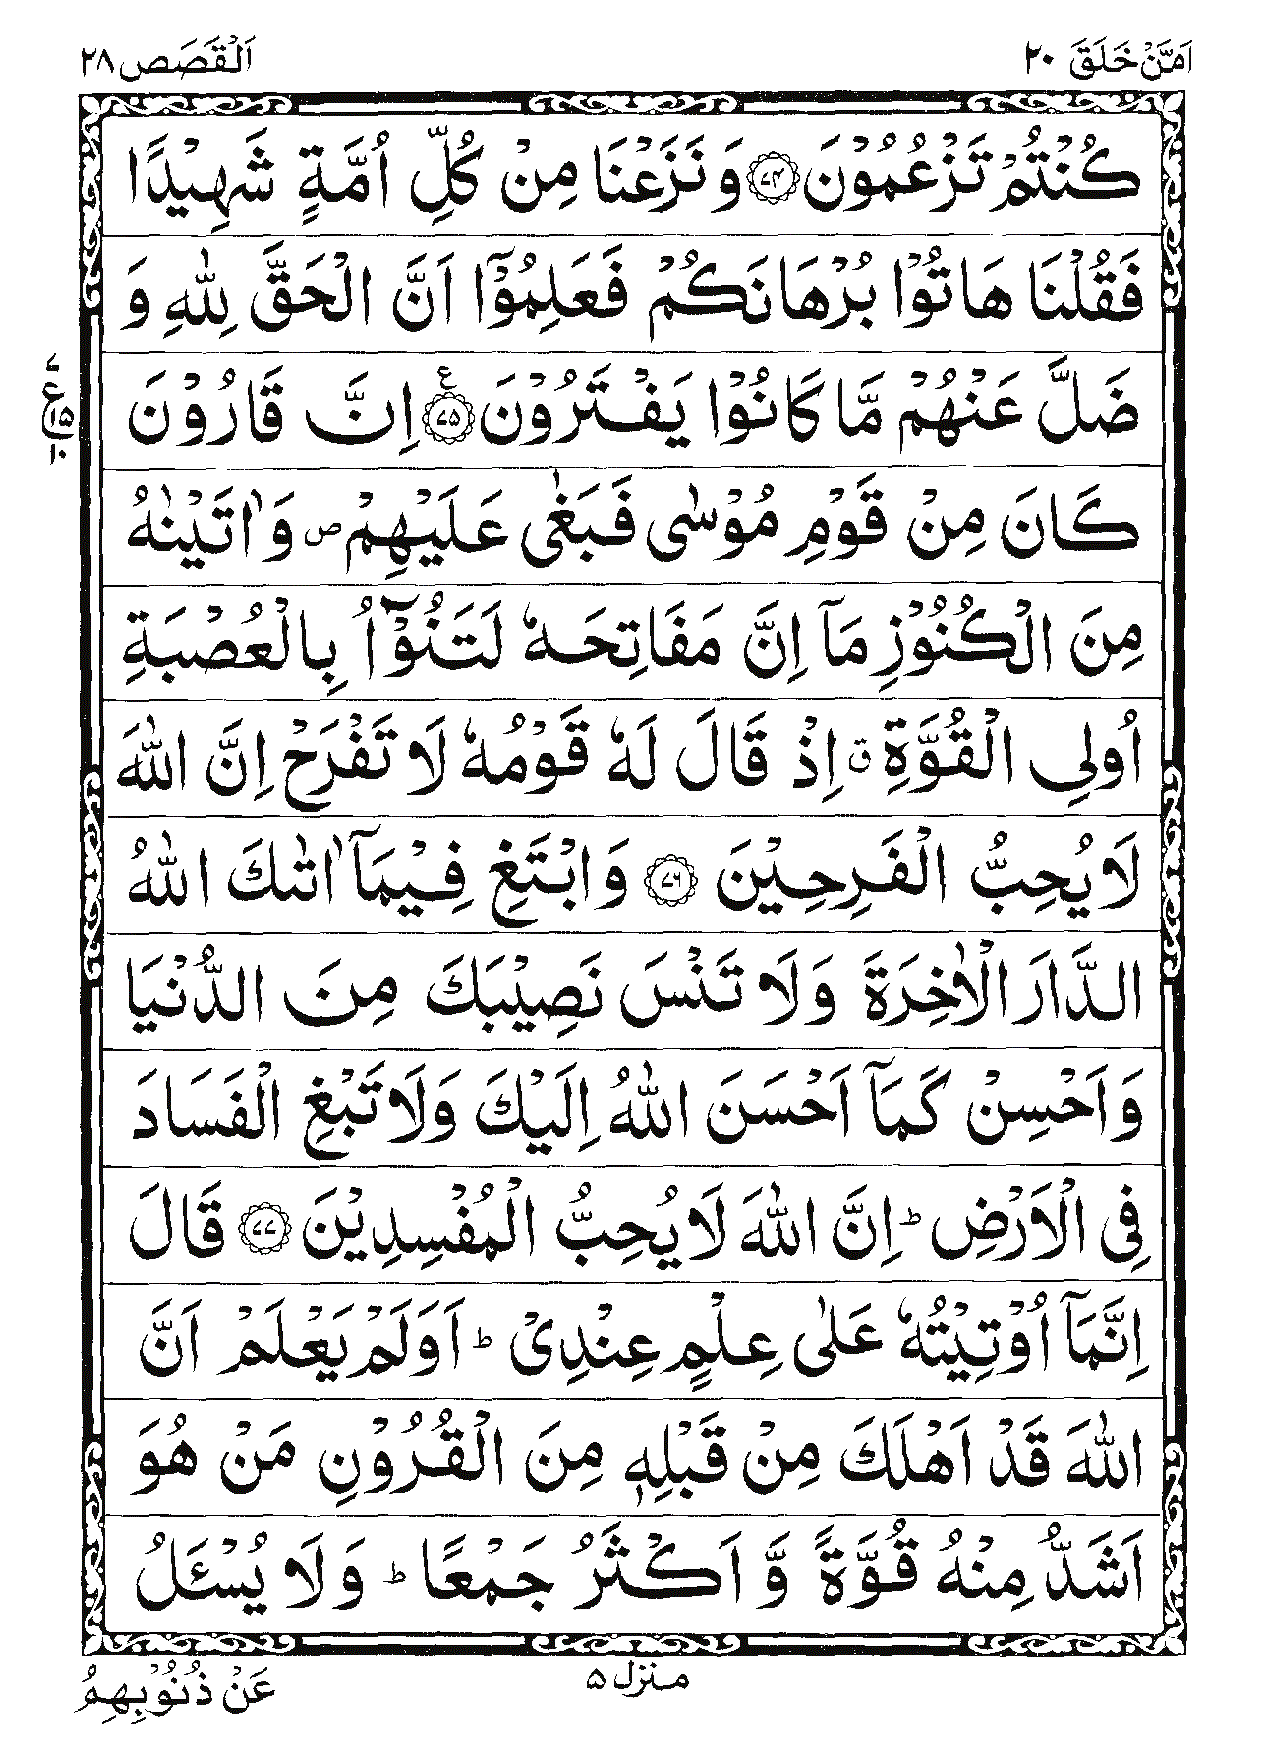 اَمَّنْ خَلَقَ ٢٠
اَلْقَصَص ٢٨
كُنْتُمْ تَزْعُمُوْنَ ﴿٧٤﴾ وَ نَزَعْنَا مِنْ كُلِّ اُمَّةٍ شَهِيْدًا
فَقُلْنَا هَاتُوْا بُرْهَانَكُمْ فَعَلِمُوْۤا اَنَّ الْحَقَّ لِلّٰهِ وَ
ضَلَّ عَنْهُمْ مَّا كَانُوْا يَفْتَرُوْنَ ﴿٧٥﴾ۧ اِنَّ قَارُوْنَ
ع
٧
١٥
١٠
كَانَ مِنْ قَوْمِ مُوْسٰى فَبَغٰى عَلَيْهِمْ ص وَ اٰتَيْنٰهُ
مِنَ الْكُنُوْزِ مَاۤ اِنَّ مَفَاتِحَهٗ لَتَنُوْٓاُ بِالْعُصْبَةِ
اُولِي الْقُوَّةِ ق اِذْ قَالَ لَهٗ قَوْمُهٗ لَا تَفْرَحْ اِنَّ اللّٰهَ
لَا يُحِبُّ الْفَرِحِيْنَ ﴿٧٦﴾ وَ ابْتَغِ فِيْمَاۤ اٰتٰىكَ اللّٰهُ
الدَّارَ الْاٰخِرَةَ وَ لَا تَنْسَ نَصِيْبَكَ مِنَ الدُّنْيَا
وَ اَحْسِنْ كَمَاۤ اَحْسَنَ اللّٰهُ اِلَيْكَ وَ لَا تَبْغِ الْفَسَادَ
فِي الْاَرْضِ ؕ اِنَّ اللّٰهَ لَا يُحِبُّ الْمُفْسِدِيْنَ ﴿٧٧﴾ قَالَ
اِنَّمَاۤ اُوْتِيْتُهٗ عَلٰى عِلْمٍ عِنْدِيْ ؕ اَوَ لَمْ يَعْلَمْ اَنَّ
اللّٰهَ قَدْ اَهْلَكَ مِنْ قَبْلِهٖ مِنَ الْقُرُوْنِ مَنْ هُوَ
اَشَدُّ مِنْهُ قُوَّةً وَّ اَكْثَرُ جَمْعًا ؕ وَ لَا يُسْـَٔلُ
منزل ٥
عَنْ ذُنُوْبِهِمُ